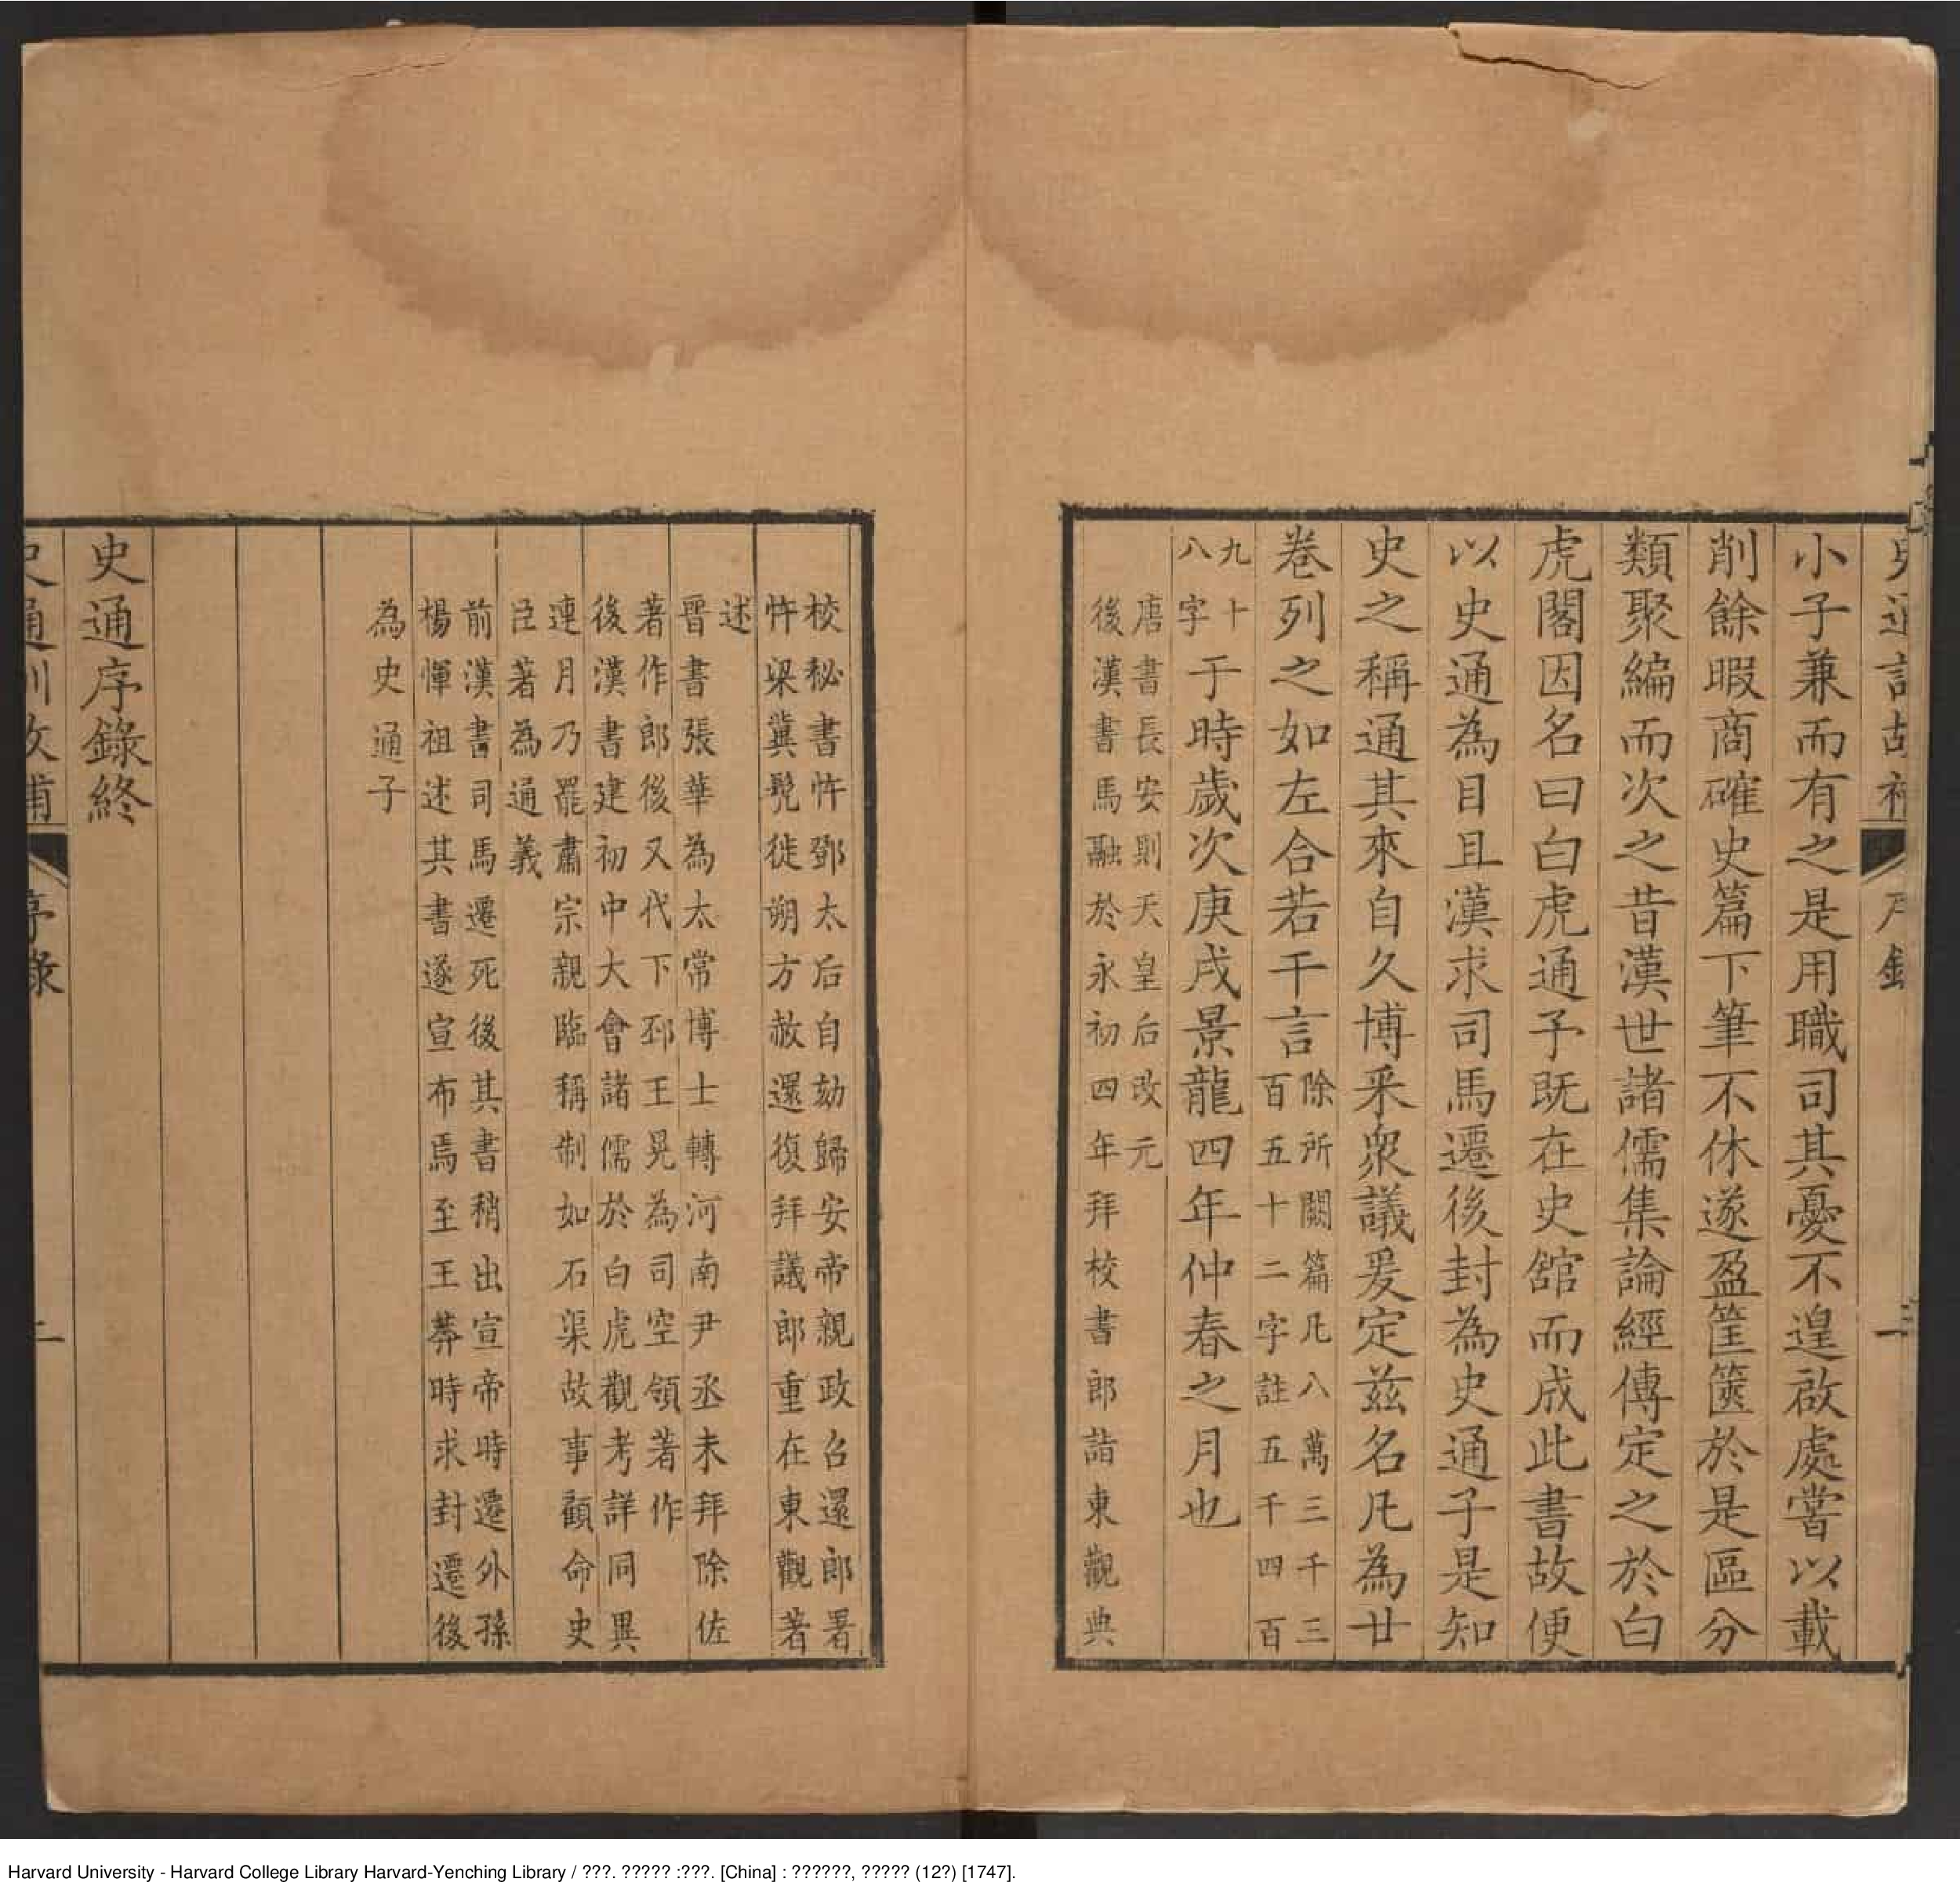 史通訓故補
序錄
小子兼而有之是用職司其憂不遑啟處嘗以載
削餘暇商確史篇下筆不休遂盈筐篋於是區分
類聚編而次之昔漢世諸儒集論經傳定之於白
虎閣因名曰白虎通予既在史舘而成此書故便
以史通為目且漢求司馬遷後封為史通子是知
史之稱通其來自久博采衆議爰定兹名凡為廿
卷列之如左合若干言除所闕篇凡八萬三千三
百五十二字註五千四百
九十
八字于時歲次庚戌景龍四年仲春之月也
唐書長安則天皇后改元
後漢書馬融於永初四年拜校書郎詣東觀典
校秘書忤鄧太后自劾歸安帝親政召還郎署
忤梁冀髡徙朔方赦還復拜議郎重在東觀著
述
晉書張華為太常博士轉河南尹丞未拜除佐
著作郎後又代下邳王晃為司空領著作
後漢書建初中大會諸儒於白虎觀考詳同異
連月乃罷肅宗親臨稱制如石渠故事顧命史
臣著為通義
前漢書司馬遷死後其書稍出宣帝時遷外孫
楊惲祖述其書遂宣布焉至王莽時求封遷後
為史通子
史通序錄終
史通訓故補
序錄
二
Harvard University - Harvard College Library Harvard-Yenching Library / ???. ????? :???. [China] : ??????, ????? (12?) [1747].